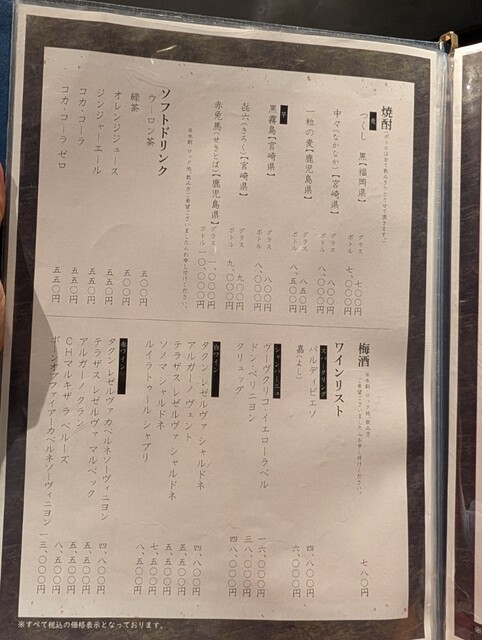 焼酎
麦
つくし 黒【福岡県】
グラス 七〇〇円
ボトル 七、〇〇〇円
中々(なかなか)【宮崎県】
グラス 八〇〇円
ボトル 八、〇〇〇円
一粒の麦【鹿児島県】
グラス 八五〇円
ボトル 八、五〇〇円
芋
黒霧島【宮崎県】
グラス 八〇〇円
ボトル 八、〇〇〇円
㐂六(きろく)【宮崎県】
グラス 九〇〇円
ボトル 九、〇〇〇円
赤兎馬(せきとば)【鹿児島県】
グラス 一、〇〇〇円
ボトル 一〇、〇〇〇円
ソフトドリンク
ウーロン茶 五〇〇円
緑茶 五〇〇円
オレンジジュース 五五〇円
ジンジャーエール 五五〇円
コカ・コーラ 五五〇円
コカ・コーラ ゼロ 五五〇円
梅酒
七八〇円
ワインリスト
スパークリング
バルディビエソ 四、八〇〇円
嘉(よし) 六、〇〇〇円
シャンパーニュ
ヴーヴクリコ イエローラベル 一六、〇〇〇円
ドン・ペリニヨン 三八、〇〇〇円
クリュッグ 四八、〇〇〇円
白ワイン
タクン レゼルヴァ シャルドネ 四、八〇〇円
アルガーノ ヴェント 五、五〇〇円
テラザス レゼルヴァ シャルドネ 五、五〇〇円
ソノマ シャルドネ 七、五〇〇円
ルイラトゥール シャブリ 八、五〇〇円
赤ワイン
タクン レゼルヴァ カベルネソーヴィニヨン 四、八〇〇円
テラザス レゼルヴァ マルベック 五、五〇〇円
アルガーノ クラン 五、五〇〇円
CHマルキザラ ベルーズ 八、五〇〇円
ボーンオブファイアー カベルネソーヴィニヨン 一三、〇〇〇円
※すべて税込の価格表示となっております。